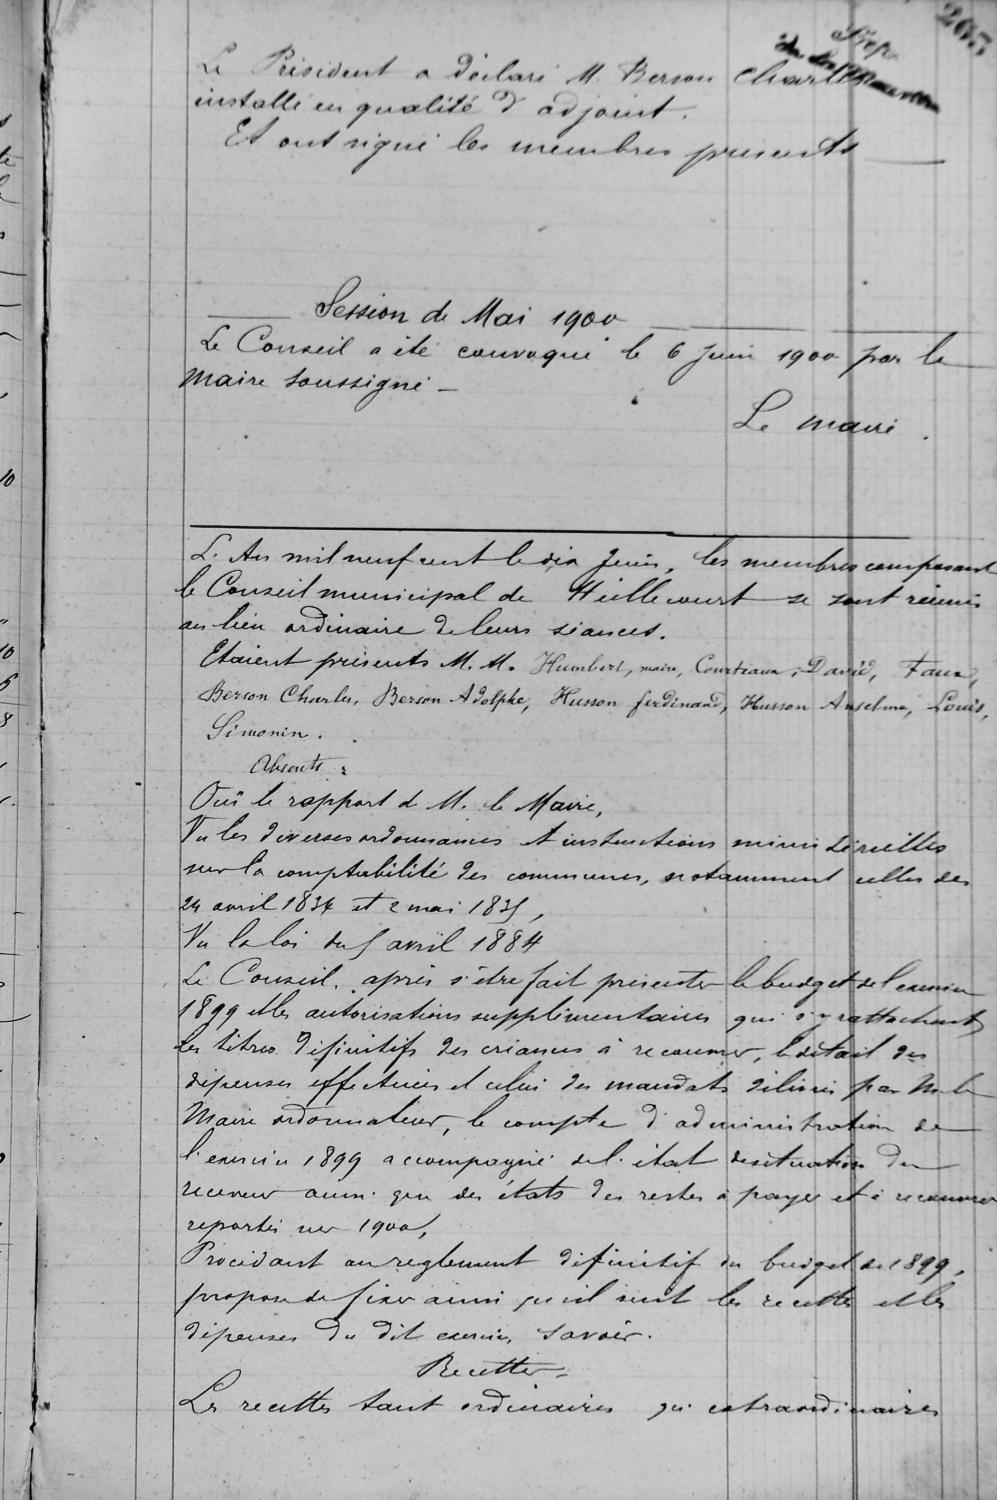 265
Le Président a déclaré M. Berson Charles
installé en qualité d'adjoint.
Et ont signé les membres présents
Session de Mai 1900
Le Conseil a été convoqué le 6 Juin 1900 par le
Maire soussigné -
Le Maire.
L'An mil neuf cent le dix Juin, les membres composant
le Conseil municipal de Heillecourt se sont réunis
au lieu ordinaire de leurs séances.
Etaient présents M. M. Humbert, maire, Courteaux, David, Faux,
Berson Charles, Berson Adolphe, Husson ferdinand, Husson Anselme, Louis,
Simonin.
Absents :
Ouï le rapport de M. le Maire,
Vu les diverses ordonnances et instructions ministérielles
sur la comptabilité des communes, notamment celles des
24 avril 1834 et 2 mai 1835,
Vu la loi du 5 avril 1884
Le Conseil, après s'être fait présenter le budget de l'exercice
1899 et les autorisations supplémentaires qui s'y rattachent,
les titres définitifs des créances à recouvrer, le détail des
dépenses effectuées et celui des mandats délivrés par M. le
Maire ordonnateur, le compte d'administration de
l'exercice 1899 accompagné de l'état de situation du
receveur ainsi que des états des restes à payer et à recouvrer
reportés sur 1900,
Procédant au règlement définitif du budget de 1899,
propose de fixer ainsi qu'il suit les recettes et les
dépenses du dit exercice, savoir.
Recettes
Les recettes tant ordinaires qu'extraordinaires